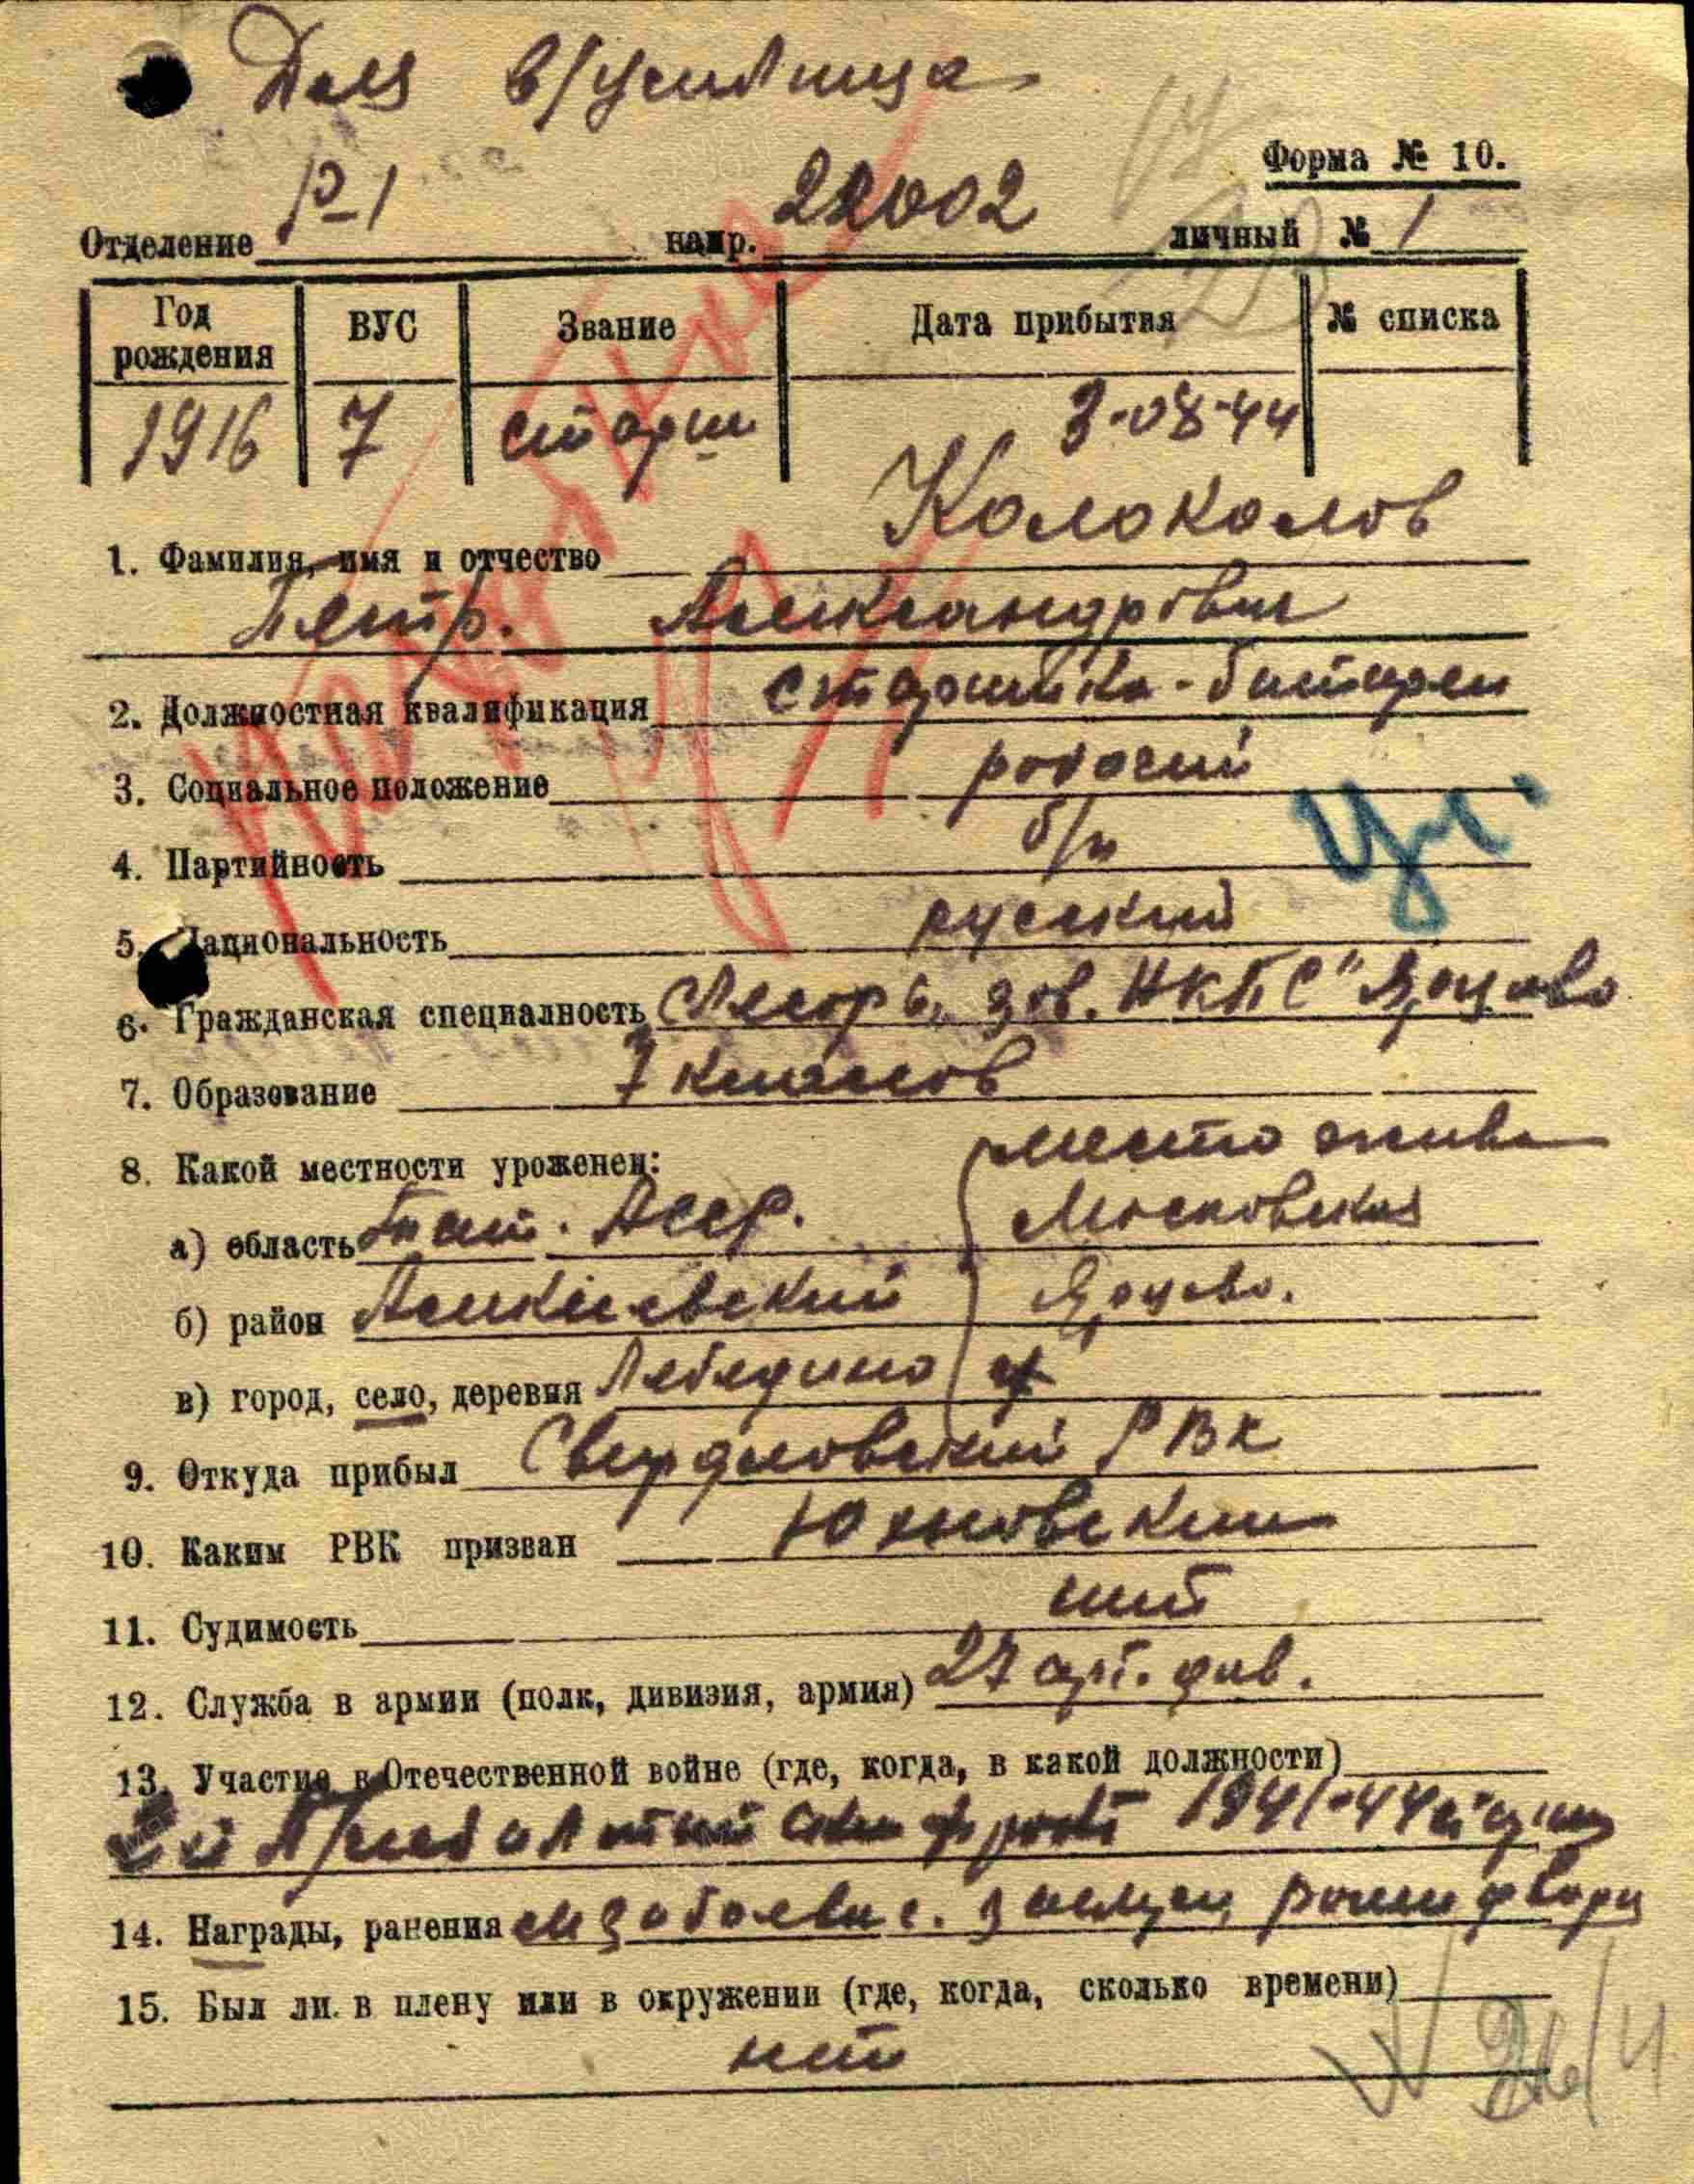 Для в/училища
Форма № 10.
Отделение Р-1 напр. 22002 личный № 1
Год рождения ВУС Звание Дата прибытия № списка
1916 7 старш 3-08-44
1. Фамилия, имя и отчество Колоколов
Петр. Александрович
2. Должностная квалификация старшина-батареи
3. Социальное положение рабочий
4. Партийность б/п
5. Национальность русский
6. Гражданская специалность Слесарь, зав. НКПС" Ярцево
7. Образование 7 классов
8. Какой местности уроженец: место жив
а) область Баш. Асср. Московская
б) район Аскинский Ярцево.
в) город, село, деревня Лебедино
9. Откуда прибыл Свердловский РВК
10. Каким РВК призван Юхновский
11. Судимость нет
12. Служба в армии (полк, дивизия, армия) 27 арт. див.
13. Участие в Отечественной войне (где, когда, в какой должности)
Прибалтийский фронт 1941-44
14. Награды, ранения
15. Был ли в плену или в окружении (где, когда, сколько времени)
нет